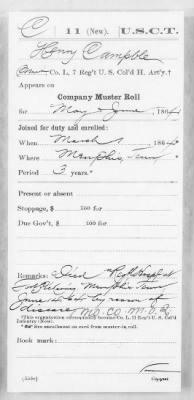 C | 11 (New). | U.S.C.T.
Henry Campble
Co. L, 7 Reg't U. S. Col'd H. Art'y.†
Appears on
Company Muster Roll
for May & June, 1864
Joined for duty and enrolled:
When March, 1864
Where Memphis, Tenn
Period 3 years.*
Present or absent
Stoppage, $ 100 for
Due Gov't, $ 100 for
Remarks: Died
Memphis Tenn
June 64 by reason of
disease.
†This organization subsequently became Co. L, 7 Reg't U. S. Col'd
Infantry (New).
*See enrollment on card from muster-in roll.
Book mark:
(358c)
Copyist.